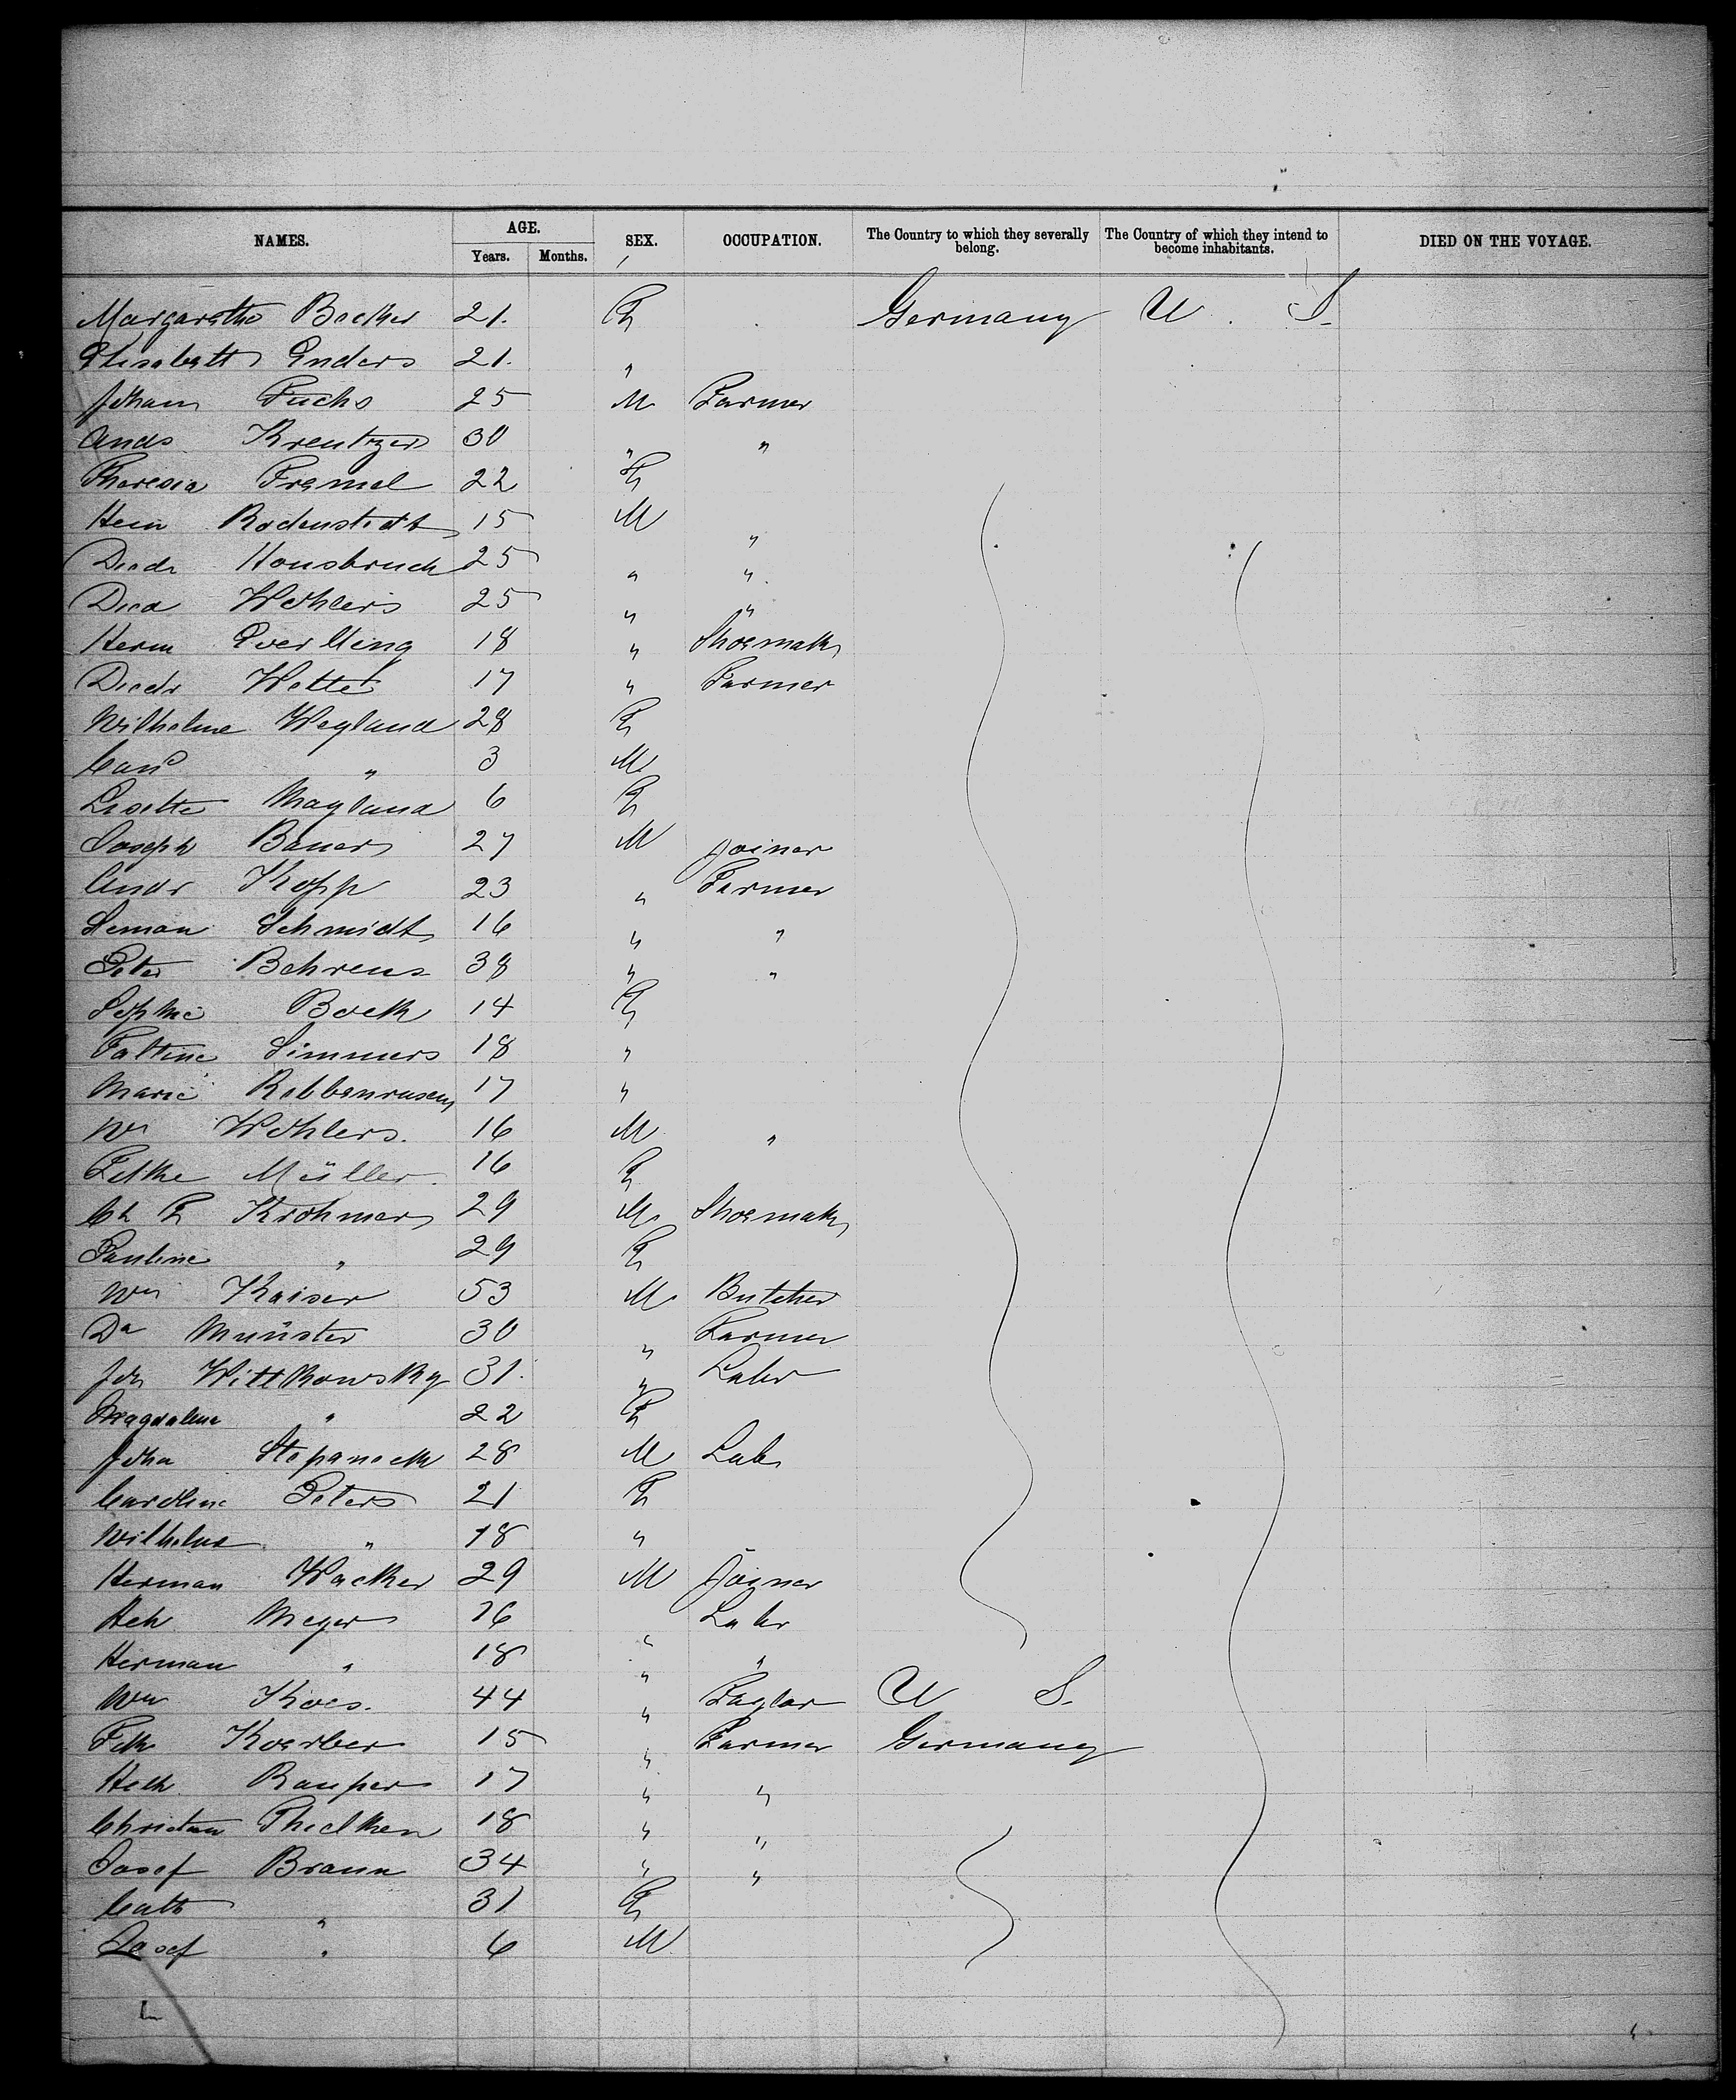 NAMES. AGE. SEX. OCCUPATION. The Country to which they severally belong. The Country of which they intend to become inhabitants. DIED ON THE VOYAGE.
Years. Months.
Margaretha Becker 21. F Germany U. S.
Elisabeth Enders 21. "
Johann Fuchs 25 M Farmer
Ands Kreutzer 30 " "
Theresia Fremel 22 F
Hein Rodenstedt 15 M "
Diedr Housbruch 25 " "
Died Wohlers 25 " "
Herm Everlling 18 " Shoemak
Diedr Wette 17 " Farmer
Wilhelme Weyland 28 F
" 3 M
Lisette Mayland 6 F
Joseph Bauer 27 M Joiner
Andr Kopp 23 " Farmer
Simon Schmidt 16 " "
Peter Behrens 38 " "
Sophie Boek 14 F
Simmers 18 "
Marie 17 "
Wm Wohlers. 16 M "
Müller 16 F
Ch F Krohmer 29 M Shoemak
Pauline " 29 F
Wm Kaiser 53 M Butcher
Da Munster 30 " Farmer
Joh Wittkowsky 31. " Labr
Magdalena " 22 F
John Stepaneck 28 M Lab
Caroline Peters 21 F
Wilhelme " 18 "
Herman Wacker 29 M Joiner
Hch Meyer 16 " Labr
Herman " 18 " "
Wm Koes. 44 " Taylor U S.
Fdk Koerber 15 " Farmer Germany
Hch Rauper 17 " "
Christian Thielken 18 " "
Josef Braun 34 " "
Cath " 31 F
Josef " 6 M
L